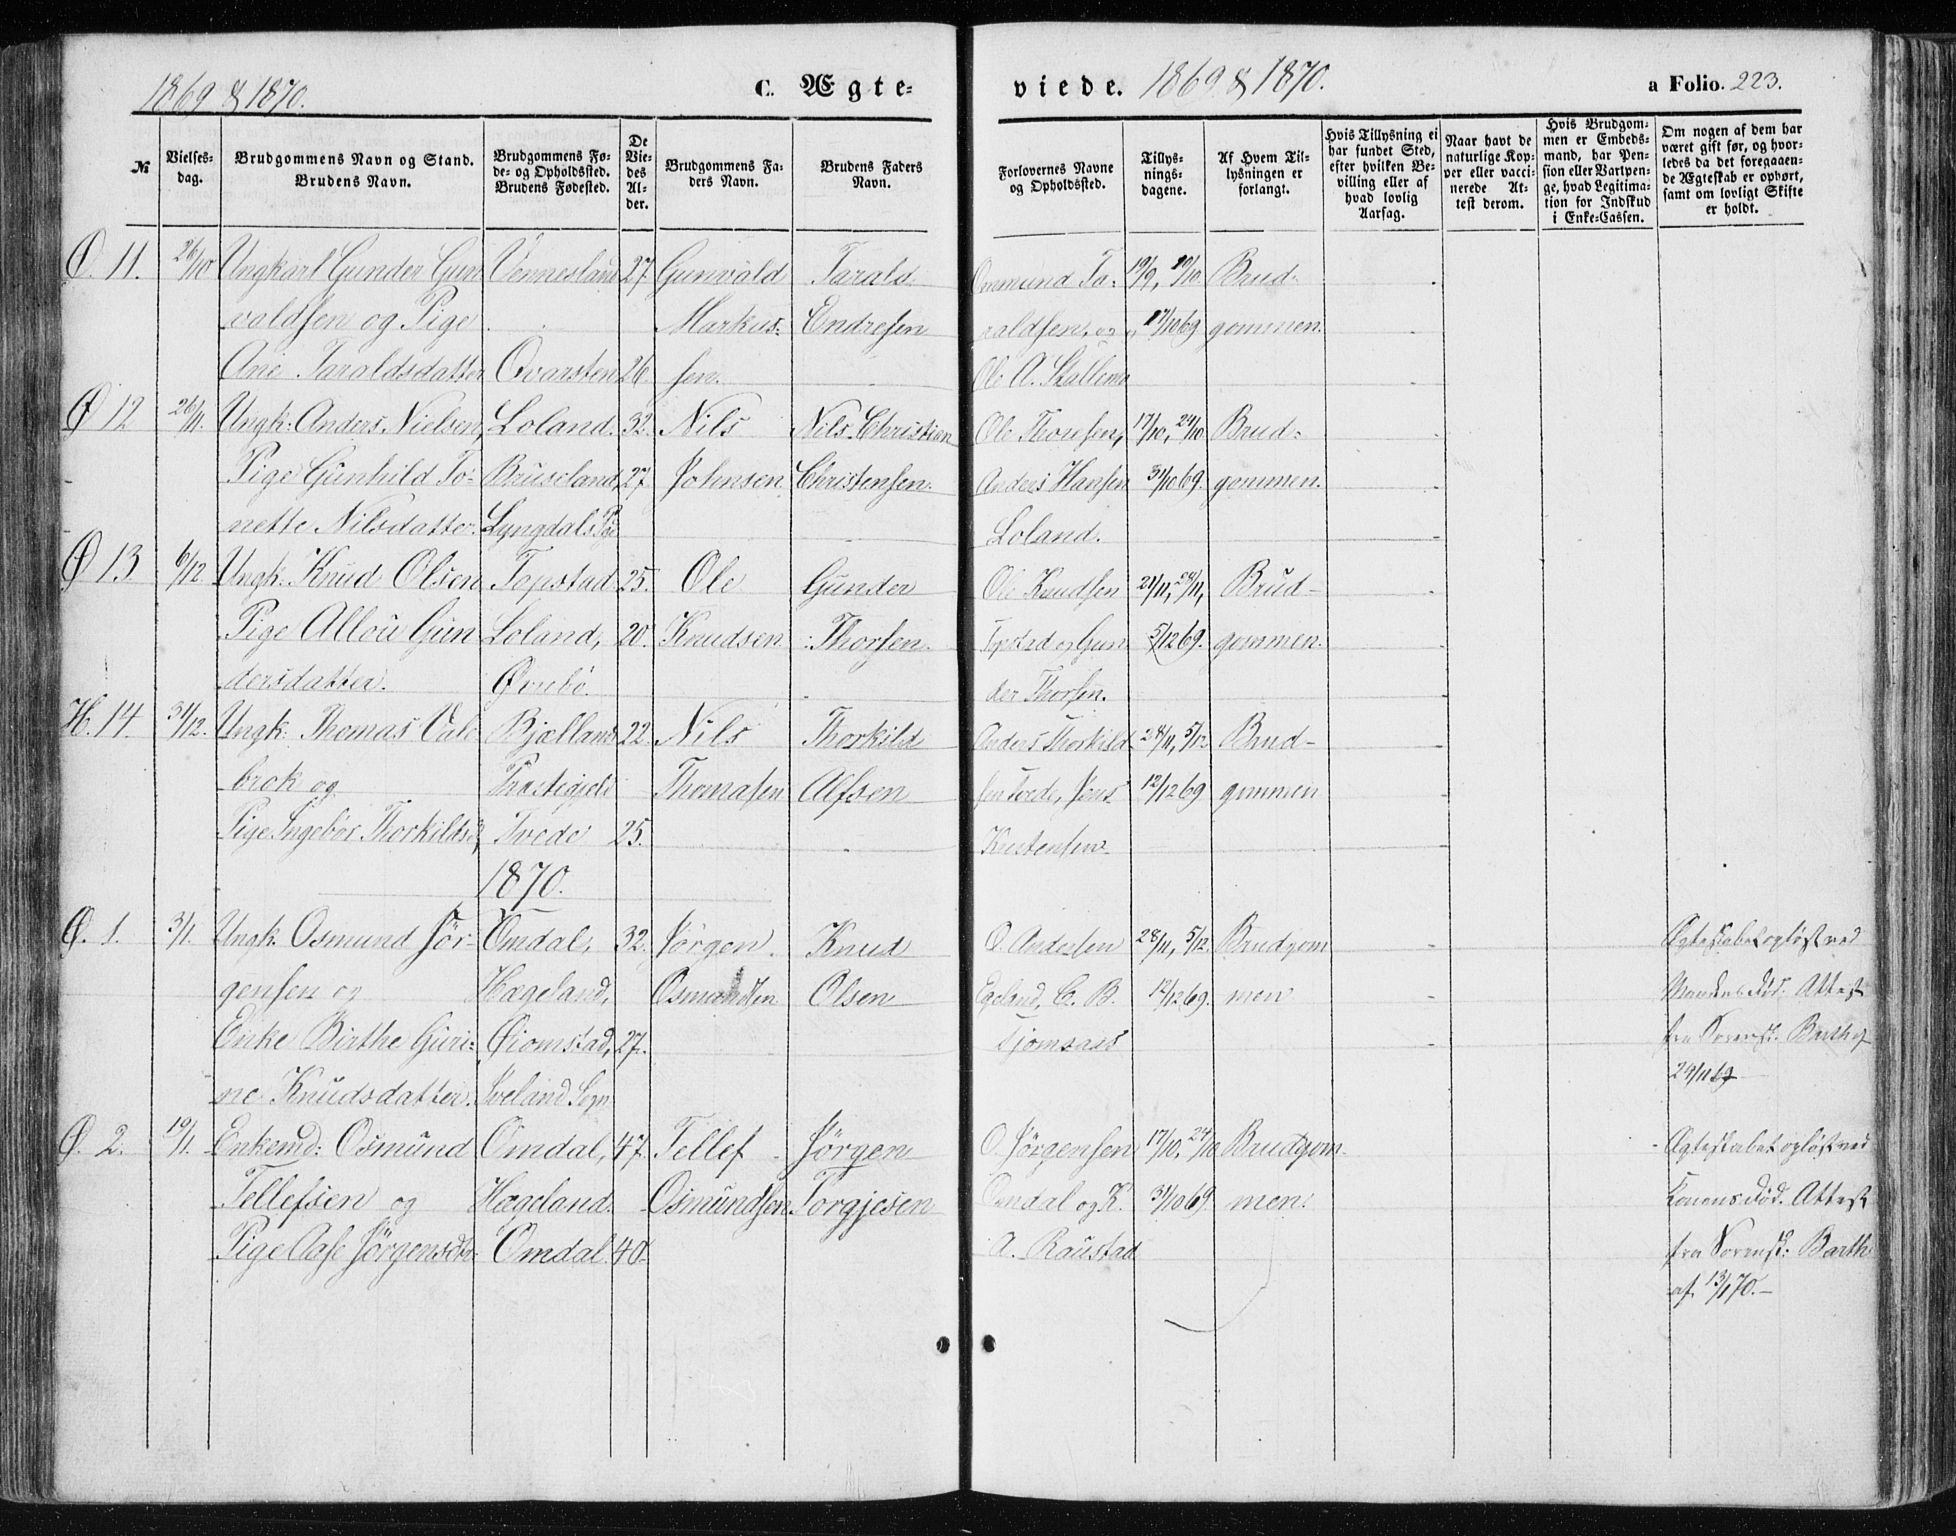 1869 & 1870. C. Ægte- viede. 1869 & 1870. a Folio. 223.
№
Vielses-
dag.
Brudgommens Navn og Stand.
Brudens Navn.
Brudgommens Fø-
de- og Opholdsted.
Brudens Fødested.
De
Vie-
des
Al-
der.
Brudgommens Fa-
ders Navn.
Brudens Faders
Navn.
Forlovernes Navne
og Opholdsted.
Tillys-
nings-
dagene.
Af Hvem Til-
lysningen er
forlangt.
Hvis Tillysning ei
har fundet Sted,
efter hvilken Be-
villing eller af
hvad lovlig
Aarsag.
Naar havt de
naturlige Kop-
per eller vacci-
nerede At-
test derom.
Hvis Brudgom-
men er Embeds-
mand, har Pen-
sion eller Vartpen-
ge, hvad Legitima-
tion for Indskud
i Enke-Cassen.
Om nogen af dem har
været gift før, og hvor-
ledes da det foregaaen-
de Ægteskab er ophørt,
samt om lovligt Skifte
er holdt.
Ø. 11. 26/10 Ungkarl Gunder Gun Vennesland 27. Gunvald Tarals- Ommund Ta- 19/9, 10/10 Brud-
valdsen og Pige Markus- Endresen raldsen, og 17/10 69 gommen.
Ane Taraldsdatter Qvarsten 26. sen. Ole A.
Ø 12 26/11. Ungk: Anders Nielsen, Loland. 32. Nils Nils Christian Ole Thorsen, 17/10, 24/10 Brud-
Pige Gunhild To- Bruseland, 27 Johnsen Christensen. Anders Hansen 31/10 69. gommen.
nette Nilsdatter. Lyngdals Pgj Loland.
Ø 13 6/12. Ungk. Knud Olsen Topstad 25. Ole Gunder Ole Knudsen 21/11, 28/11, Brud-
Pige Gun Loland, 20. Knudsen Thorsen. Topstad og Gun 5/12 69. gommen.
dersdatter. Øvrebö. der Thorsen.
H. 14. 31/12. Ungk. Thomas Vale Bjælland 22. Nils Thorkild Anders Thorkild 28/11, 5/12. Brud-
brok og Præstegjeld Thomasen Alfsen sen Tvede, Jens 12/12 69 gommen
Pige Ingebor Thorkilds Tvede 25. Kristensen
1870.
Ø. 1. 3/1. Ungk. Osmund Jör- Omdal, 32. Jörgen Knud O. Andersen 28/11, 5/12. Brudgom
gensen og Hægeland, Osmundsen Olsen Egeland, C. B. 12/12 69. men
Enke Birthe Guri- Øiomstad, 27. Tjomsaas
ne Knudsdatter. Iveland Sogn
Ægteskabet oplöst ved
Mandens Död. Attest
fra Sorensk. Barth af
29/11 69
Ø. 2. 19/1. Enkemd: Osmund Omdal, 47. Tellef Jörgen O. Jörgensen 17/10, 24/10 Brudgom-
Tellefsen og Hægeland. Osmundsen Torgjesen Omdal og K. 31/10 69. men.
Pige Aase Jörgensdtr. Omdal 40. A. Raustad
Ægteskabet oplöst ved
Konens Död. Attest
fra Sorensk: Barth
af 13/1 70.